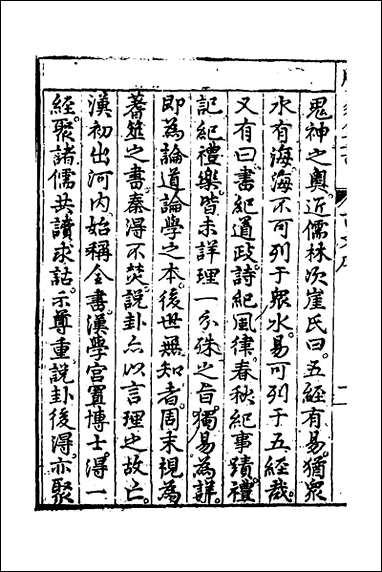 鬼神之奧。近儒林次崖氏曰。五經有易。猶衆
水有海。海不可列于衆水。易可列于五經哉。
又有曰。書紀道政。詩紀風律。春秋紀事蹟。禮
記紀禮樂。皆未詳理一分殊之旨。獨易為詳。
即為論道論學之本。後世無知者。周末視為
蓍筮之書。秦得不焚。說卦亦以言理之故亡。
漢初出河內始稱全書。漢學宮置博士。得一
經。聚諸儒共讀求詁。示尊重。說卦後得。亦聚